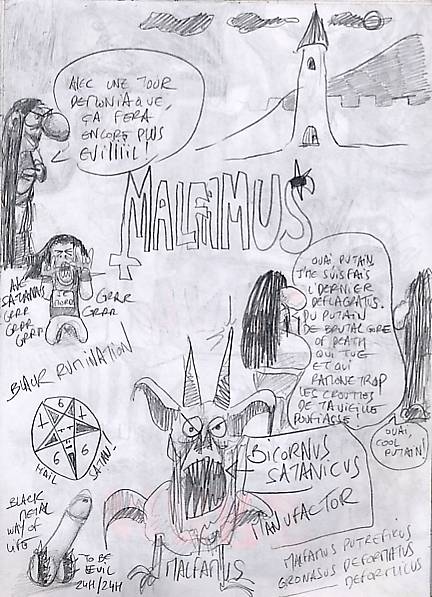 AVEC UNE TOUR
DEMONIAQUE,
ÇA FERA
ENCORE PLUS
EVIIIIIL!
MALFAMUS
AVE
SATANAS
GRRR
GRRR
GRRR
GRRR
GRRR
BLACK RUMINATION
OUAI PUTAIN
J'ME SUIS FAIS
L'DERNIER
DEFLAGRATIS.
DU PUTAIN
DE BRUTAL GORE
OF DEATH
QUI TUE
ET QUI
RAMONE TROP
LES CROUTTES
DE TA VIEILLE
OUAI,
COOL
PUTAIN!
6
6
6
HAIL
SATAN!
BICORNUS
SATANICUS
MANUFACTOR
BLACK
METAL
WAY OF
LIFE
TO BE
EVIL
24H/24H
MALFAMUS
MALFAMUS PUTREFICUS
GRONASUS DEFORMATUS
DEFORMICUS